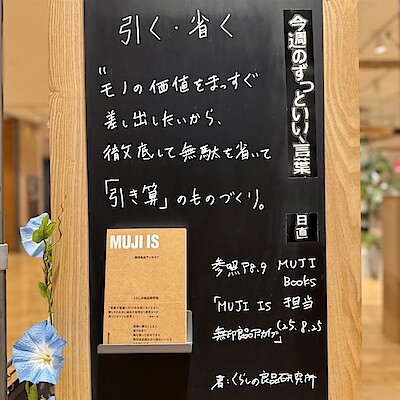 今週のずっといい言葉
引く・省く
"モノの価値をまっすぐ
差し出したいから、
徹底して無駄を省いて
「引き算」のものづくり。
日直
MUJI
Books
担当
('25.8.25
参照P8.9
「MUJI IS
無印良品アーカイブ」
著:くらしの良品研究所
MUJI IS
無印良品アーカイブ
くらしの良品研究所